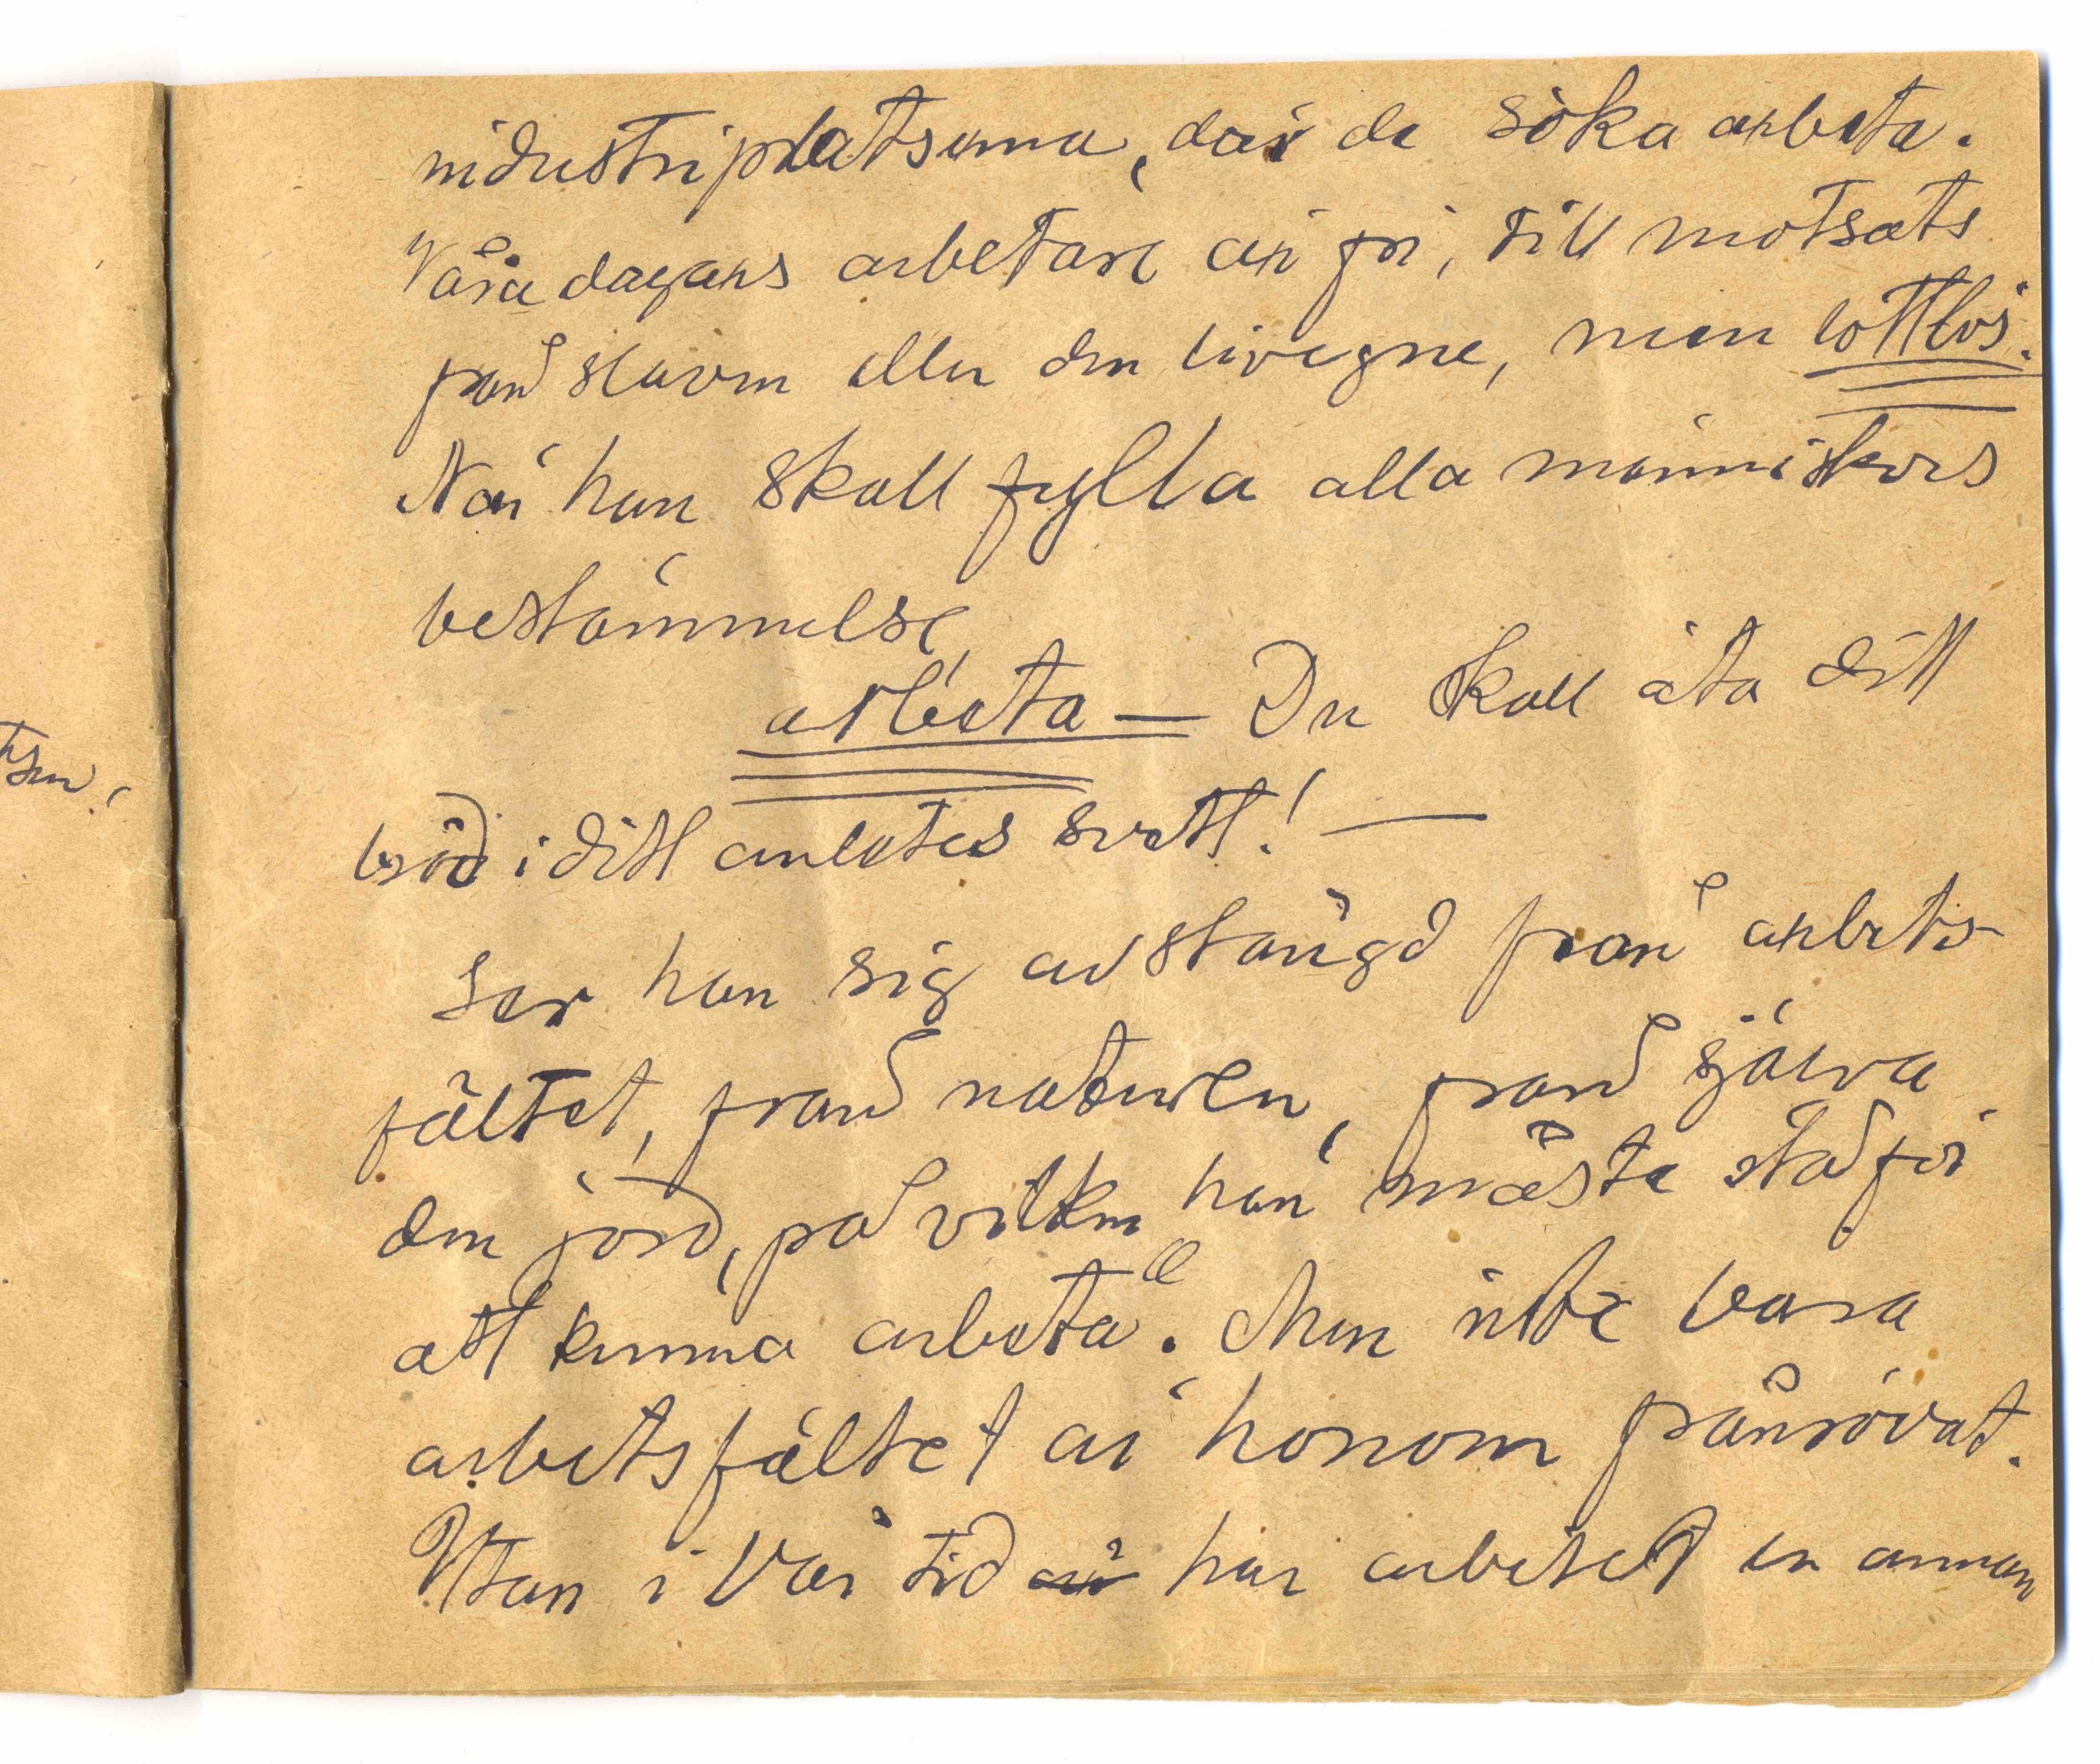 industriplatserna, där de söka arbeta.
Våra dagars arbetare är fri, till motsats
från slaven eller den livegne, men lottlös.
När han skall fylla alla människors
bestämmelse
arbeta — Du skall äta ditt
bröd i ditt anletes svett! —
ser han sig avstängd från arbets-
fältet, från naturen, från själva
den jord, på vilken han måste stå för
att kunna arbeta. Men icke bara
arbetsfältet är honom frånrövat.
Utan i vår tid är har arbetet en annan